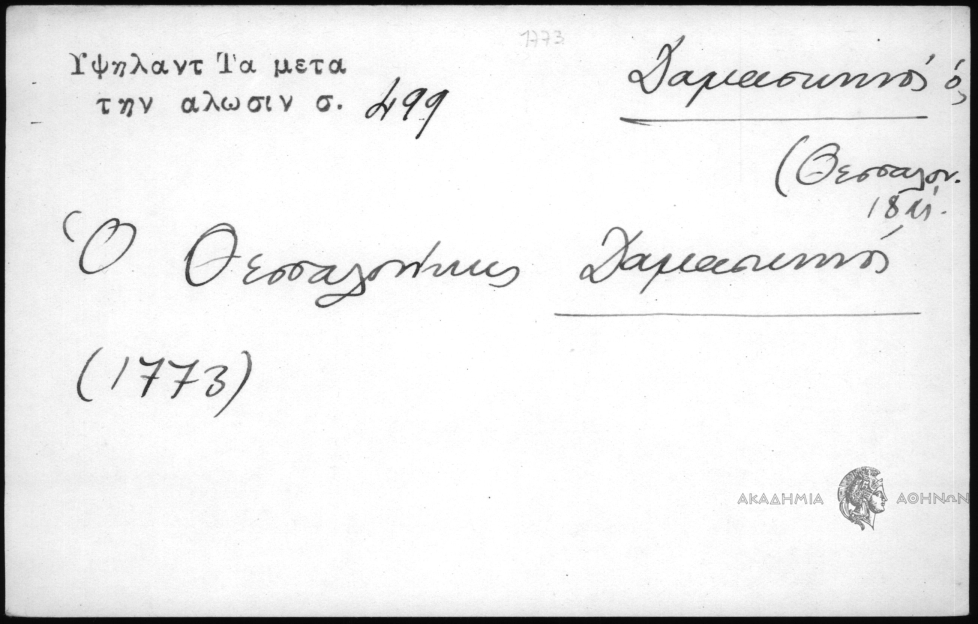 1773
Υψηλαντ Τα μετα
την αλωσιν σ. 499
Δαμασκηνός ὁ
(Θεσσαλον.
18
Ὁ Θεσσαλονίκης Δαμασκηνός
(1773)
ΑΚΑΔΗΜΙΑ ΑΘΗΝΩΝ